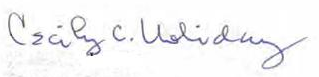 Cecily C. Holiday